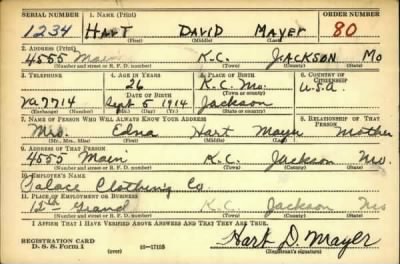 SERIAL NUMBER 1. NAME (Print) ORDER NUMBER
1234 HART DAVID MAYER 80
(First) (Middle) (Last)
2. ADDRESS (Print)
4555 Main K.C. JACKSON Mo
(Number and street or R. F. D. number) (Town) (County) (State)
3. TELEPHONE 4. AGE IN YEARS 5. PLACE OF BIRTH 6. COUNTRY OF CITIZENSHIP
26 K.C. Mo. U.S.A.
DATE OF BIRTH (Town or county)
Va 7714 Sept 5 1914 Jackson
(Exchange) (Number) (Mo.) (Day) (Yr.) (State or country)
7. NAME OF PERSON WHO WILL ALWAYS KNOW YOUR ADDRESS 8. RELATIONSHIP OF THAT PERSON
Mrs. Edna Hart Mayer Mother
(Mr., Mrs., Miss) (First) (Middle) (Last)
9. ADDRESS OF THAT PERSON
4555 Main K.C. Jackson Mo.
(Number and street or R. F. D. number) (Town) (County) (State)
10. EMPLOYER'S NAME
Palace Clothing Co
11. PLACE OF EMPLOYMENT OR BUSINESS
12th Grand K.C. Jackson Mo
(Number and street or R. F. D. number) (Town) (County) (State)
I AFFIRM THAT I HAVE VERIFIED ABOVE ANSWERS AND THAT THEY ARE TRUE.
REGISTRATION CARD
D. S. S. FORM 1 (over) 16-17105 Hart D. Mayer
(Registrant's signature)